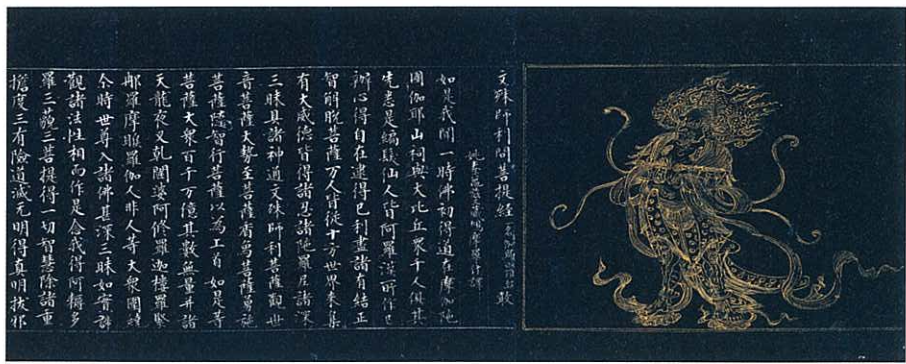 文殊師利問菩提經
姚秦三藏鳩摩羅什譯
如是我聞一時佛初得道在摩伽陁
國伽耶山祠與大比丘眾千人俱其
先悉是編髮仙人皆阿羅漢所作已
辦心得自在逮得己利盡諸有結正
智解脫菩薩万人皆從十方世界來集
有大威德皆得諸忍諸陁羅尼諸深
三昧具諸神通文殊師利菩薩觀世
音菩薩大勢至菩薩香象菩薩勇施
菩薩隨智行菩薩以為上首如是等
菩薩大眾百千万億其數無量并諸
天龍夜叉乾闥婆阿修羅迦樓羅緊
那羅摩睺羅伽人非人等大眾圍繞
尒時世尊入諸佛甚深三昧如實諦
觀諸法性相而作是念我得阿耨多
羅三藐三菩提得一切智慧除諸重
擔度三有險道滅无明得真明拔邪